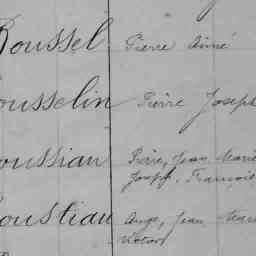 Roussel Pierre Aimé
Rousselin Pierre Joseph
Roussiau Pierre, Jean Marie
Joseph, François
Roustiau Ange, Jean Marie
Victor